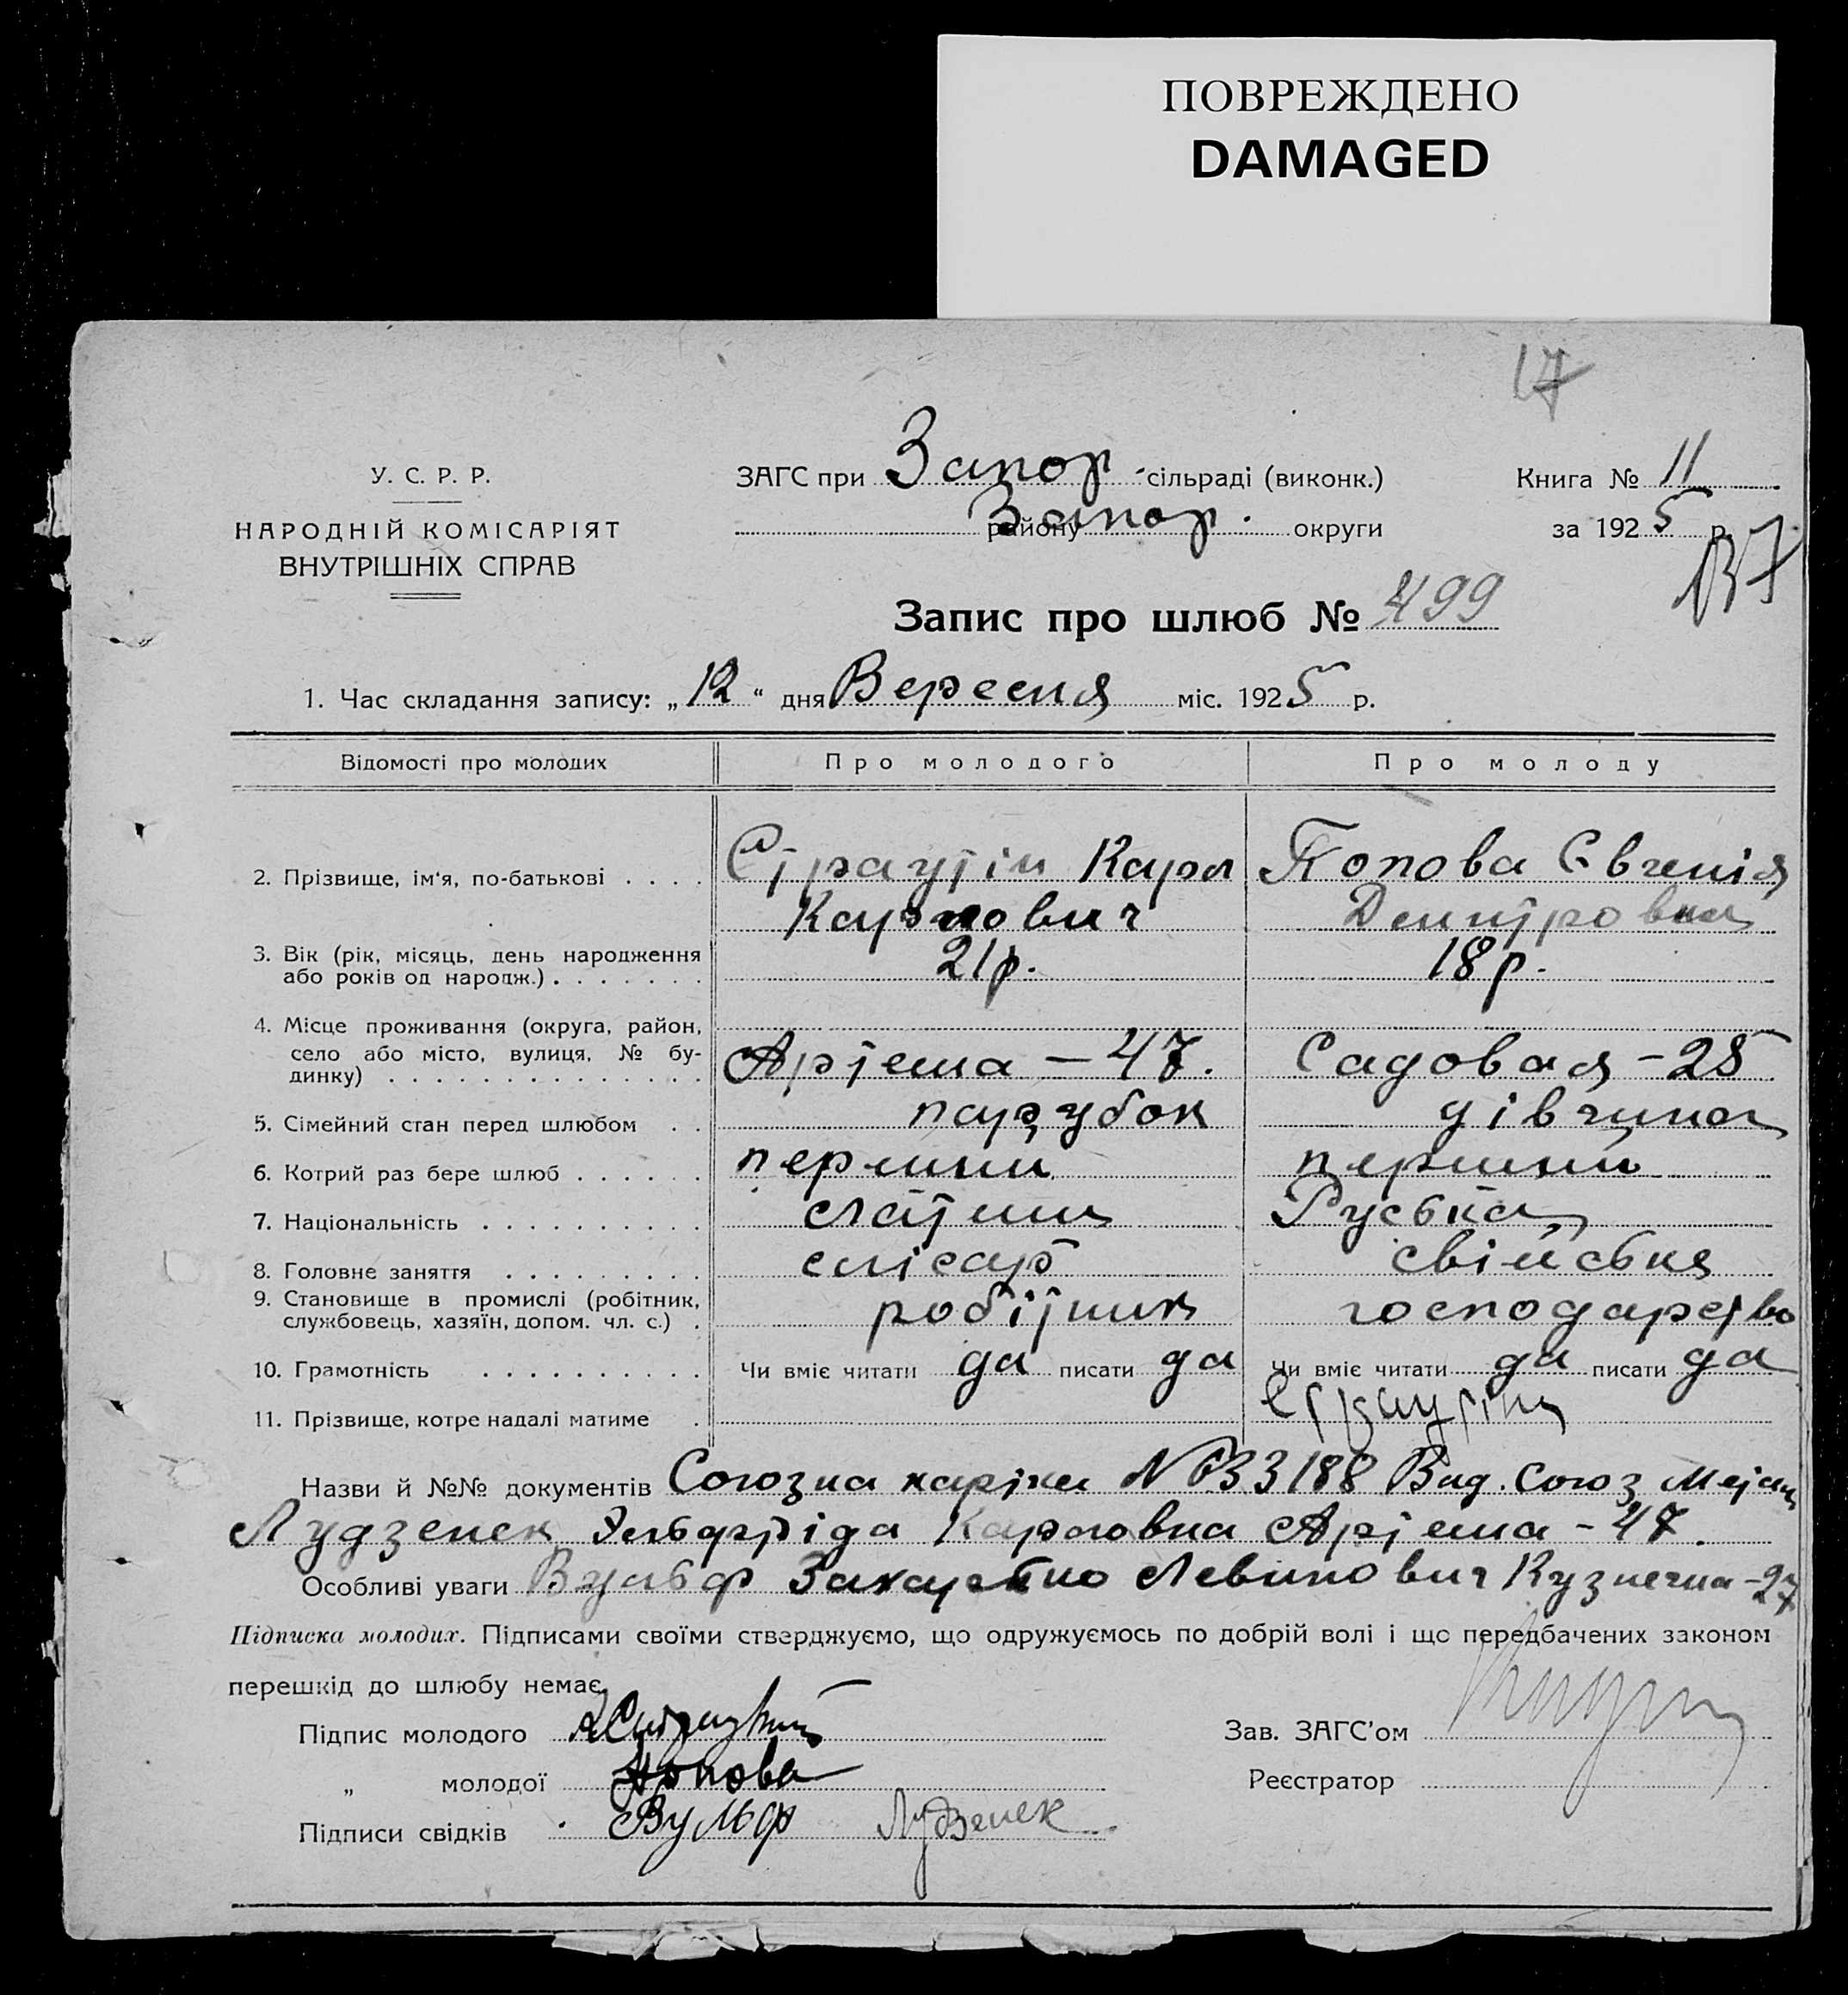 ПОВРЕЖДЕНО
DAMAGED
17
У. С. Р. Р.
НАРОДНІЙ КОМІСАРІЯТ
ВНУТРІШНІХ СПРАВ
ЗАГС при Запор. сільраді (виконк.)
району Запор. округи
Книга № 11
за 1925 р.
137
Запис про шлюб № 499
1. Час складання запису: „12“ дня Вересня міс. 1925 р.
Відомості про молодих Про молодого Про молоду
2. Прізвище, ім'я, по-батькові . . . . Страутін Карл Попова Євгенія
Карлович Дмитровна
3. Вік (рік, місяць, день народження
або років од народж.) . . . . . . . 21р. 18р.
4. Місце проживання (округа, район,
село або місто, вулиця, № бу-
динку) . . . . . . . . . . . . . . Артема – 47. Садовая – 25
5. Сімейний стан перед шлюбом . . парубок дівчина
6. Котрий раз бере шлюб . . . . . . перший перший
7. Національність . . . . . . . . . . латиш Руська
8. Головне заняття . . . . . . . . . слісар свійське
9. Становище в промислі (робітник,
службовець, хазяїн, допом. чл. с.) . робітник господарство
10. Грамотність . . . . . . . . . . Чи вміє читати да писати да Чи вміє читати да писати да
11. Прізвище, котре надалі матиме . Страутін
Назви й №№ документів Союзна картка № 33188 Вид. Союз Метал
Лудзенек Эльфріда Карловна Артема – 47.
Особливі уваги Вульф Левинович Кузнечна – 27
Підписка молодих. Підписами своїми стверджуємо, що одружуємось по добрій волі і що передбачених законом
перешкід до шлюбу немає.
Підпис молодого
Зав. ЗАГС'ом
„ молодої Попова
Реєстратор
Підписи свідків Вульф Лудзенек